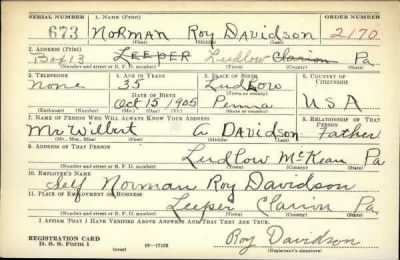 SERIAL NUMBER 1. NAME (Print) ORDER NUMBER
673 NORMAN Roy DAVIDSON 2170
(First) (Middle) (Last)
2. ADDRESS (Print)
Box 13 LEEPER Ludlow Clarion Pa
(Number and street or R. F. D. number) (Town) (County) (State)
3. TELEPHONE 4. AGE IN YEARS 5. PLACE OF BIRTH 6. COUNTRY OF CITIZENSHIP
None 35 Ludlow
DATE OF BIRTH (Town or county)
Oct 15 1905 Penna USA
(Exchange) (Number) (Mo.) (Day) (Yr.) (State or country)
7. NAME OF PERSON WHO WILL ALWAYS KNOW YOUR ADDRESS 8. RELATIONSHIP OF THAT PERSON
Mr Willert A DAVIDSON Father
(Mr., Mrs., Miss) (First) (Middle) (Last)
9. ADDRESS OF THAT PERSON
Ludlow McKean Pa
(Number and street or R. F. D. number) (Town) (County) (State)
10. EMPLOYER'S NAME
Self Norman Roy Davidson
11. PLACE OF EMPLOYMENT OR BUSINESS
Leeper Clarion Pa
(Number and street or R. F. D. number) (Town) (County) (State)
I AFFIRM THAT I HAVE VERIFIED ABOVE ANSWERS AND THAT THEY ARE TRUE.
REGISTRATION CARD
D. S. S. Form 1 (over) 16—17105 Roy Davidson
(Registrant's signature)